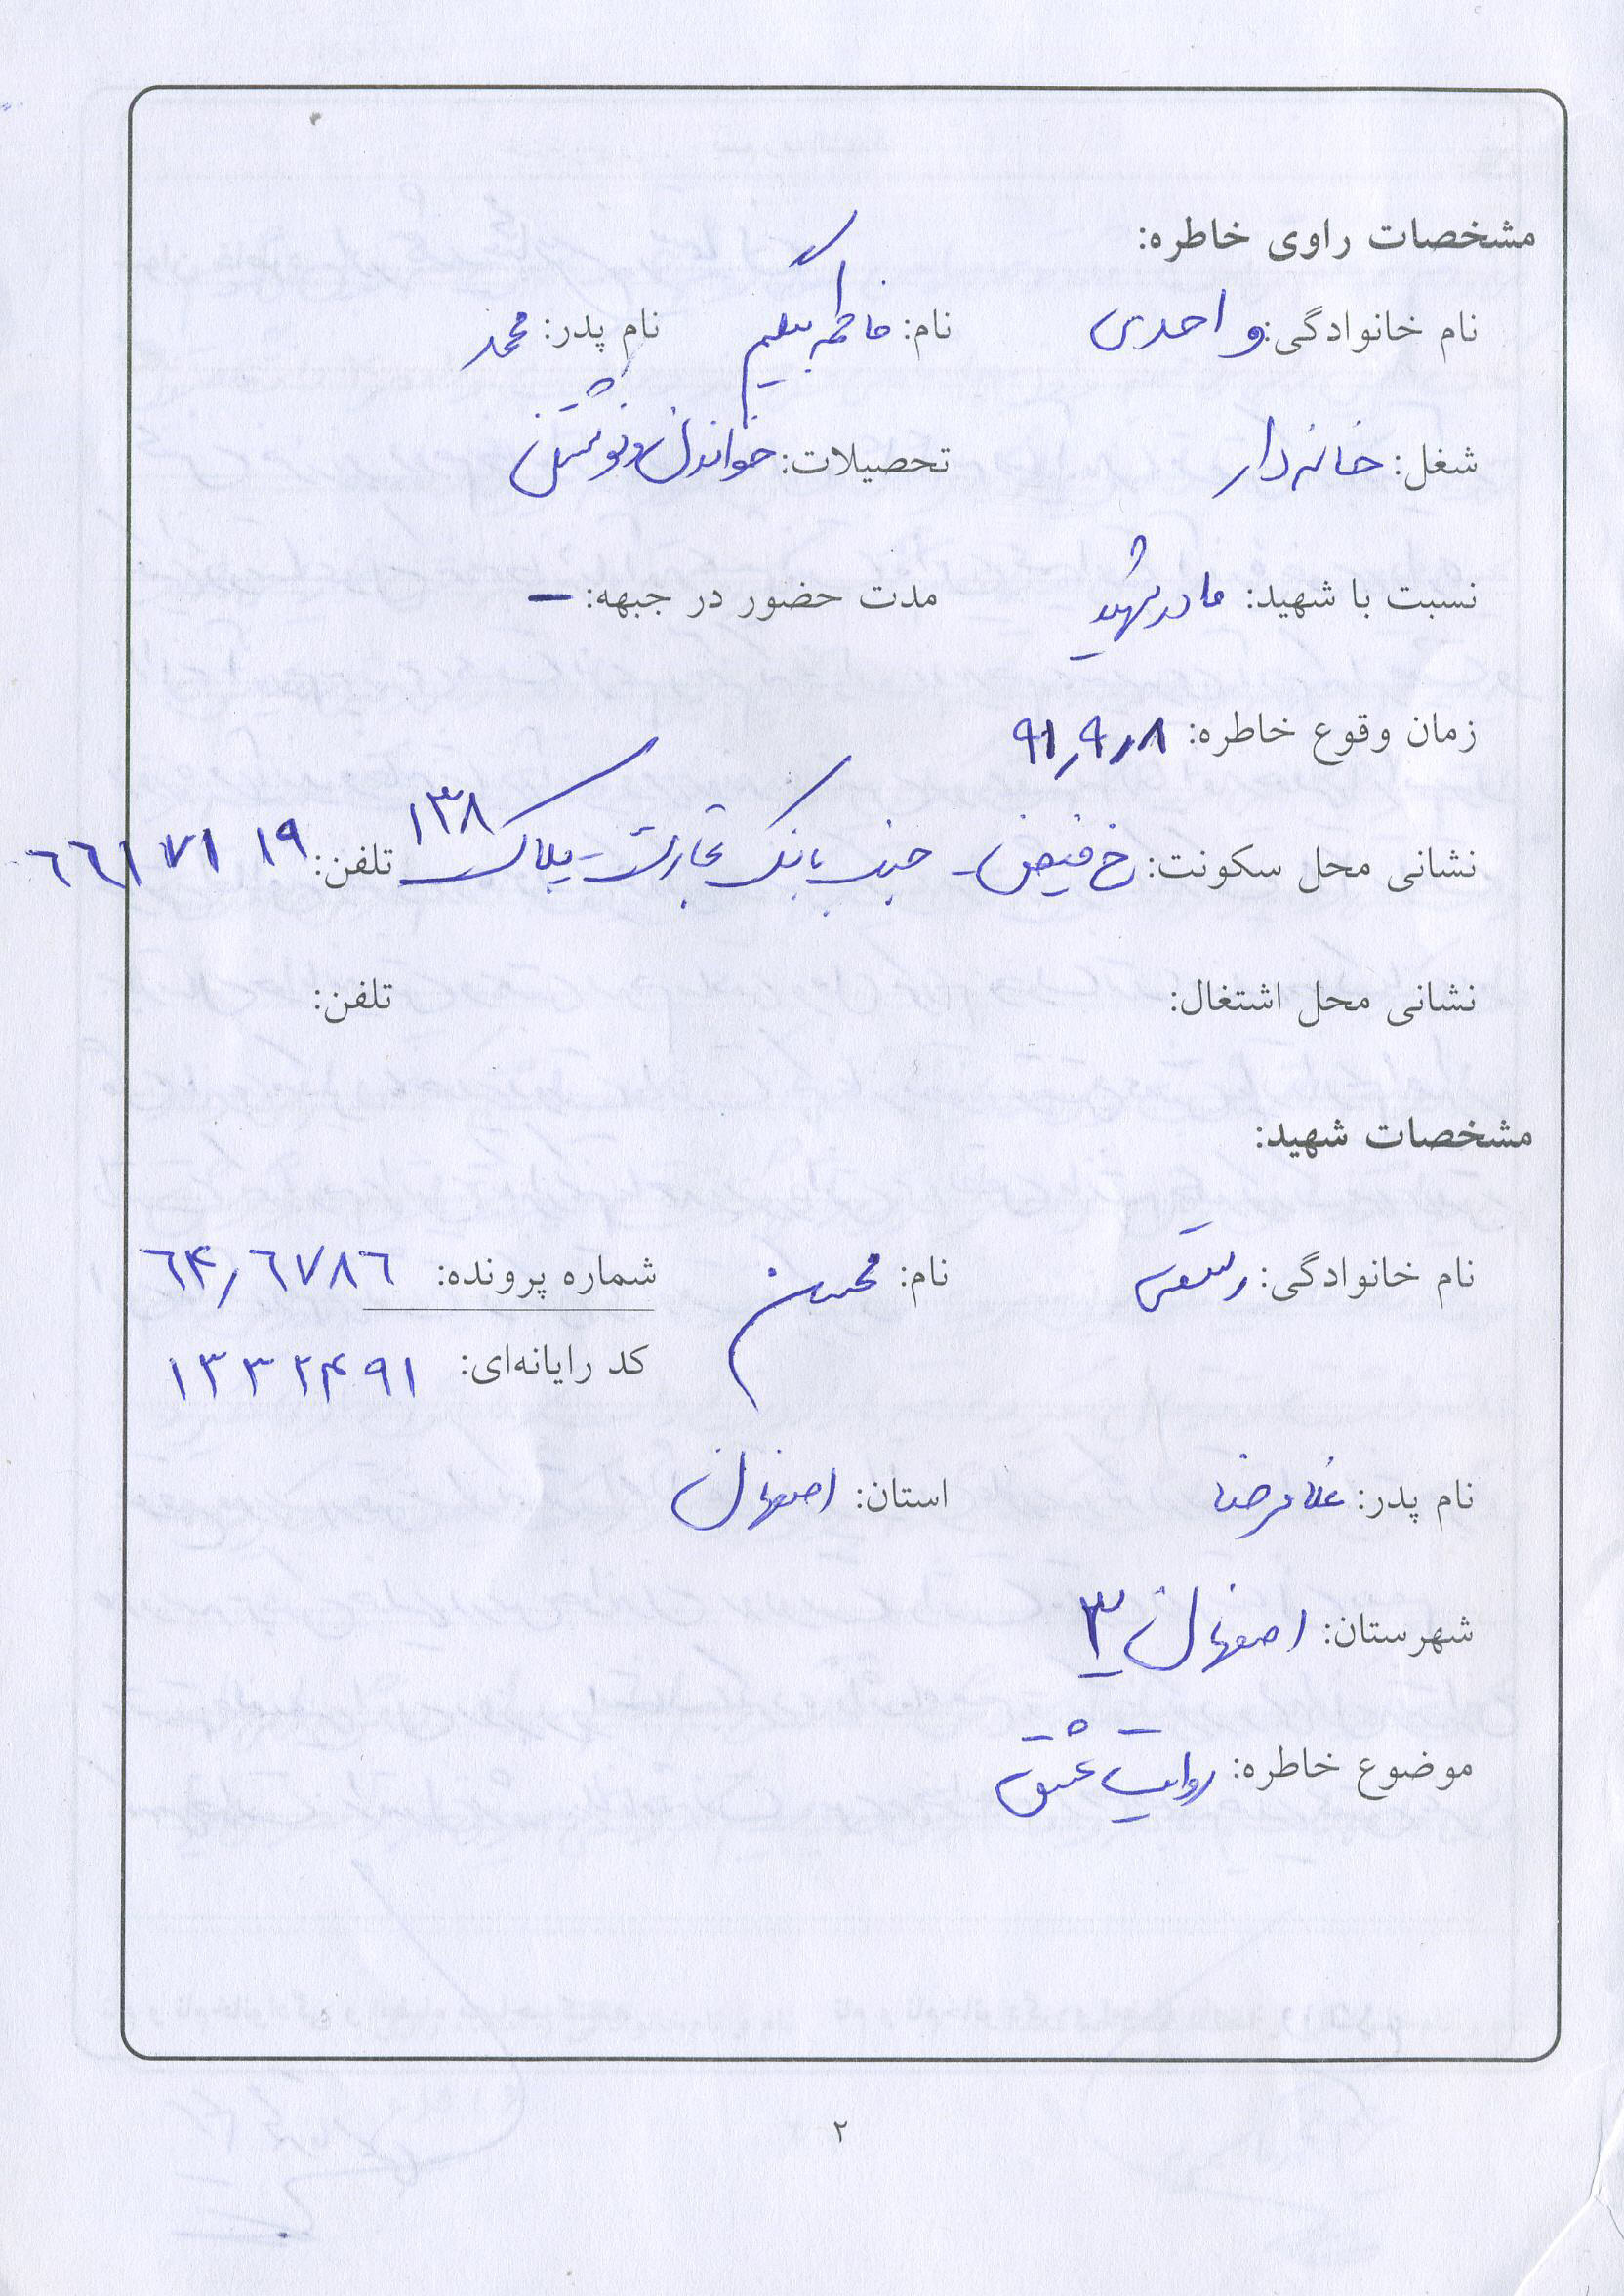 مشخصات راوی خاطره:
نام خانوادگی: واحدی نام: فاطمه بیگم نام پدر: محمد
شغل: خانه دار تحصیلات: خواندن و نوشتن
نسبت با شهید: مادر شهید مدت حضور در جبهه: –
زمان وقوع خاطره: ۹۱٫۹٫۸
نشانی محل سکونت: خ فیض - جنب بانک تجارت - پلاک ۱۳۸ تلفن: ۶۶۱۷۱۱۹
نشانی محل اشتغال: تلفن:
مشخصات شهید:
نام خانوادگی: نام: محسن شماره پرونده: ۶۴٫۶۷۸۶
کد رایانه‌ای: ۱۳۳۲۴۹۱
نام پدر: غلامرضا استان: اصفهان
شهرستان: اصفهان ۳
موضوع خاطره: روایت عشق
۲